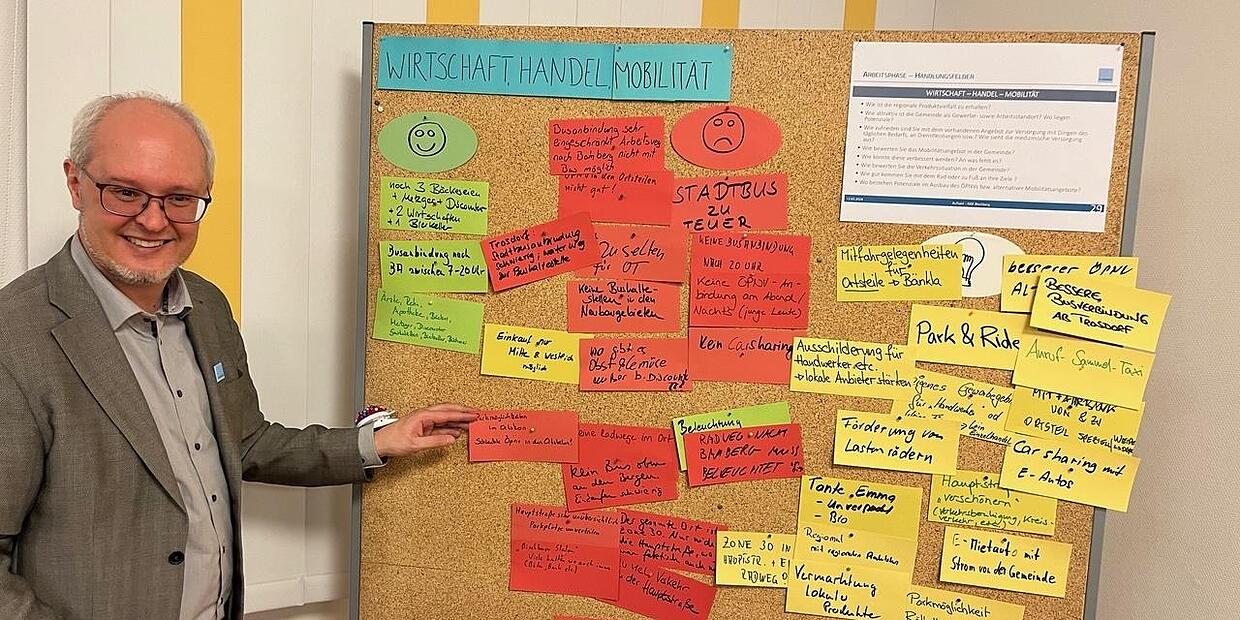 WIRTSCHAFT, HANDEL, MOBILITÄT
ARBEITSPHASE – HANDLUNGSFELDER
WIRTSCHAFT – HANDEL – MOBILITÄT
Wie ist die regionale Produktvielfalt zu erhalten?
Wie attraktiv ist die Gemeinde als Gewerbe- sowie Arbeitsstandort? Wo liegen
Potenziale?
Wie zufrieden sind Sie mit dem vorhandenen Angebot zur Versorgung mit Dingen des
täglichen Bedarfs, an Dienstleistungen usw.? Wie sieht die medizinische Versorgung
aus?
Wie bewerten Sie das Mobilitätsangebot in der Gemeinde?
Wie könnte diese verbessert werden? An was fehlt es?
Wie bewerten Sie die Verkehrssituation in der Gemeinde?
Wie gut kommen Sie mit dem Rad oder zu Fuß an Ihre Ziele?
Wo bestehen Potenziale im Ausbau des ÖPNVs bzw. alternativer Mobilitätsangebote?
29
noch 3 Bäckereien
+ Metzger + Discounter
+ 2 Wirtschaften
+ 1 Bierkeller
Busanbindung nach
BA zwischen 7-20 Uhr
Apotheke
Busanbindung sehr
eingeschränkt Arbeitsweg
nach Bamberg nicht mit
Bus möglich
in den Ortsteilen
nicht gut!
STADTBUS
ZU
TEUER
Trosdorf:
Stadtbusanbindung
schwierig, weiter Weg
zur Bushaltestelle
Zu selten
für OT
KEINE BUSANBINDUNG
NACH 20 UHR
Keine ÖPNV-An-
bindung am Abend/
Nachts (junge Leute)
Keine Bushalte-
stellen in den
Neubaugebieten
Kein Carsharing
Einkauf nur
Mitte & westlich
möglich
Wo gibt es
Obst & Gemüse
außer b. Discounter
???
Parkmöglichkeiten
im Ortskern
Schlechte Öpnv in den Ortsteilen!
keine Radwege im Ort
Kein Bus oben
an den Bergen
Einkaufen schwierig
Beleuchtung
RADWEG NACHT
BAMBERG MUSS
BELEUCHTET
Hauptstraße sehr unübersichtlich
Der gesamte Ort ist
Zone 30. Nur
die Hauptstraße, wo
man faktisch auch
zu viel Verkehr
in der Hauptstraße
ZONE 30 IN
HAUPTSTR. +
RADWEG
Mitfahrgelegenheiten
für
Ortsteile → Bänkla
besserer ÖPNV
BESSERE
BUSVERBINDUNG
AB TROSDORF
Park & Ride
Anruf-Sammel-Taxi
Ausschilderung für
Handwerker, etc.
→ lokale Anbieter stärken
MITFAHRBANK
VON & ZU
Förderung von
Lastenrädern
Car sharing mit
E-Autos
Tante Emma
- Unverpackt
- Bio
Hauptstr.
verschönern
(Verkehrsberuhigung, Kreis-
verkehr, etc.)
Regional
E-Mietauto mit
Strom von der Gemeinde
Vermarktung
lokale
Produkte
Parkmöglichkeit